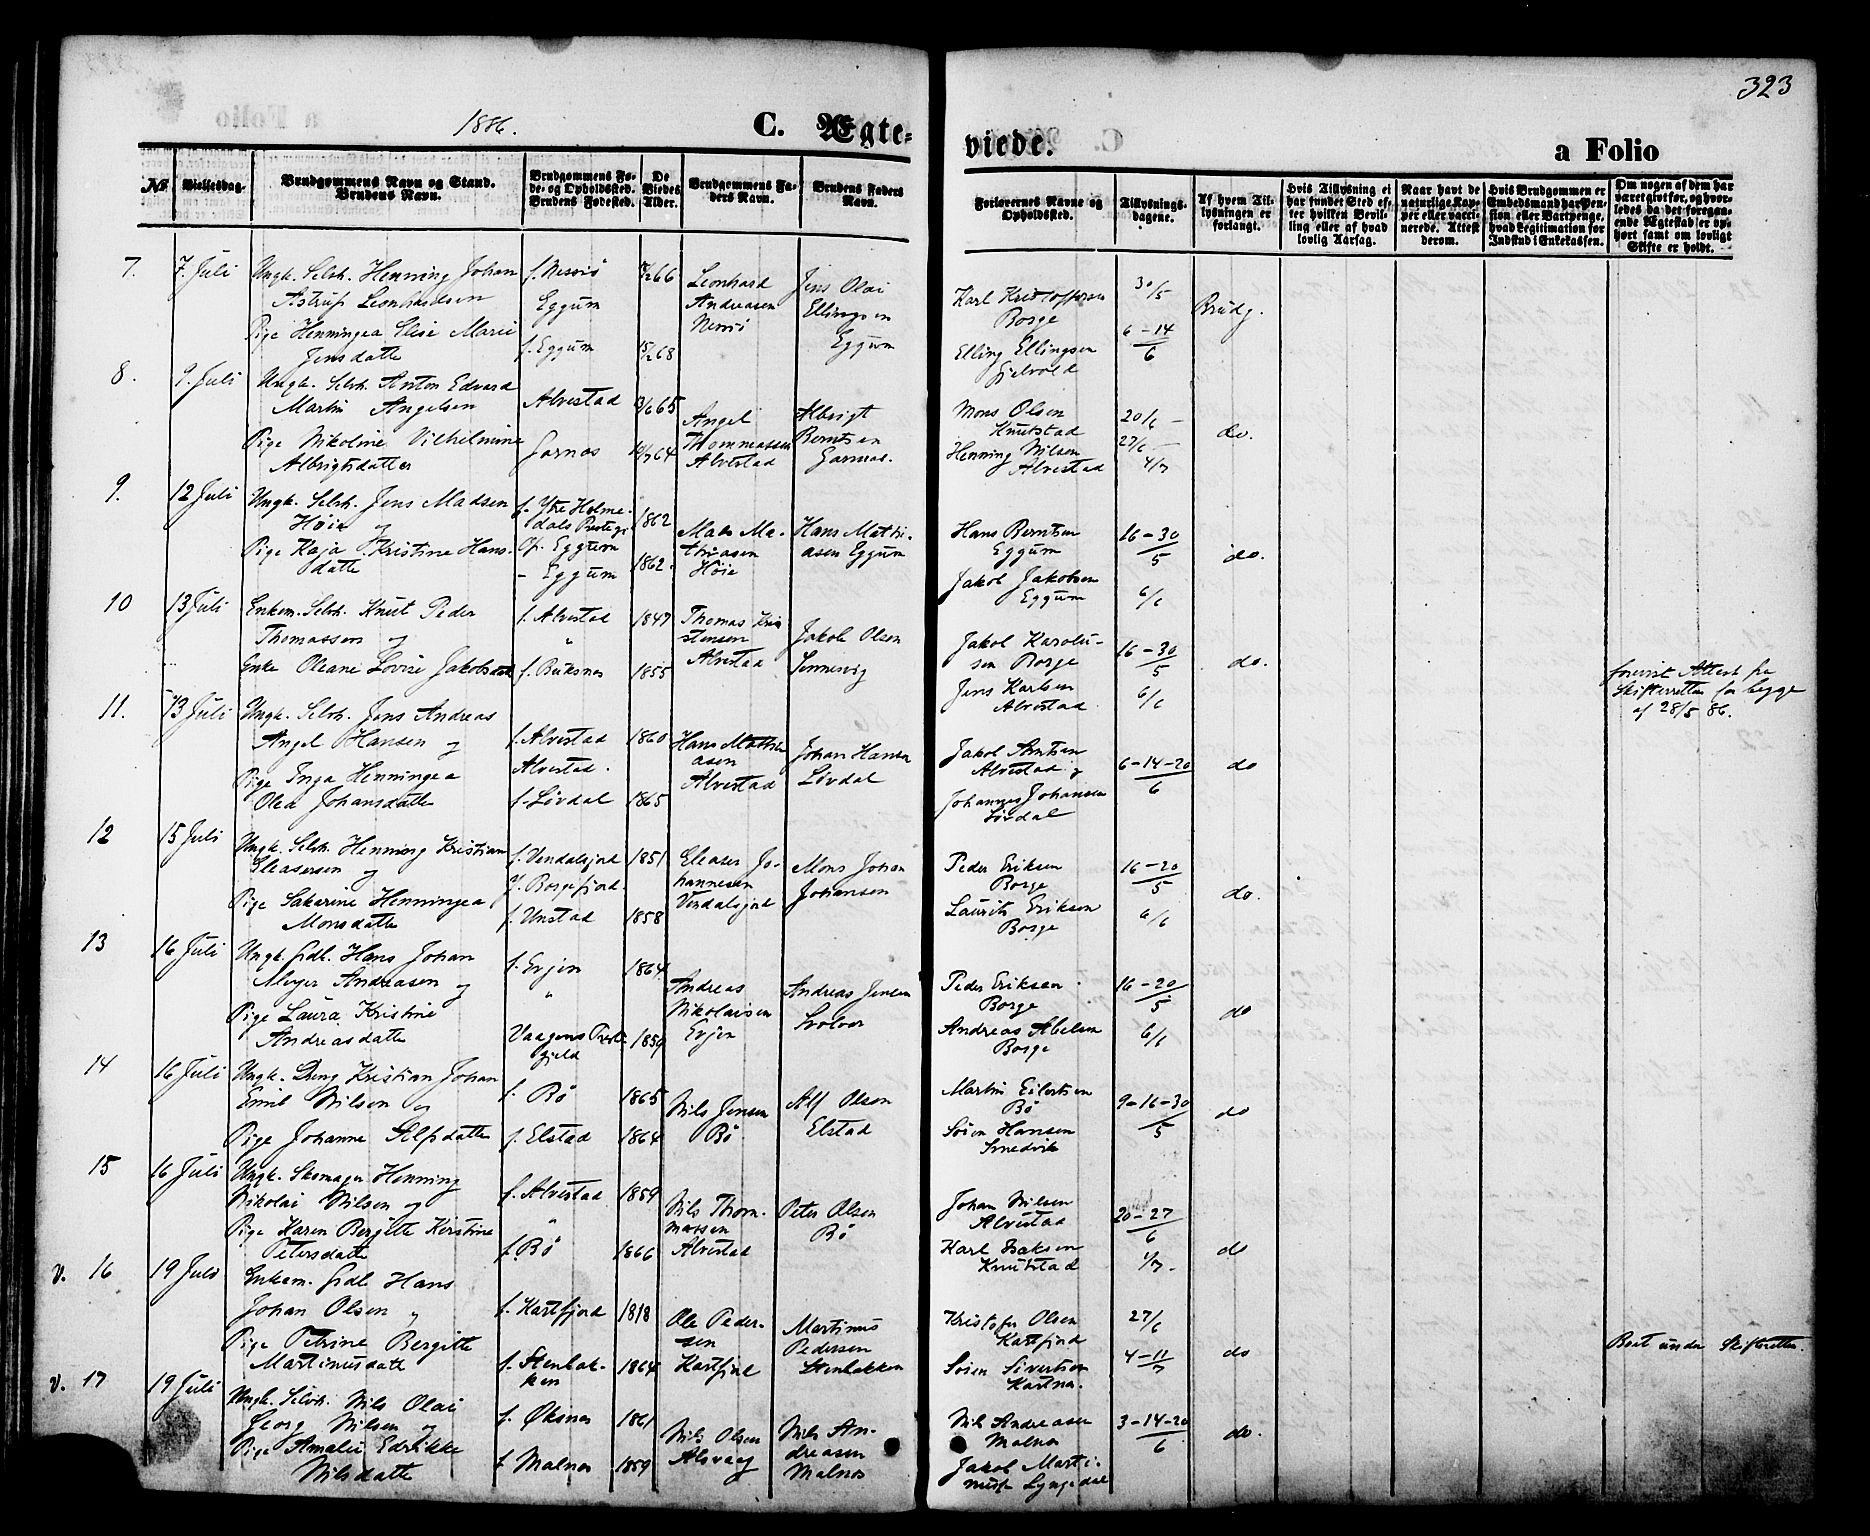 323
1886.
C. Ægte-
viede.
a Folio
No.
Vielsesdag.
Brudgommens Navn og Stand.
Brudens Navn.
Brudgommens Fø-
de- og Opholdssted.
Brudens Fødested.
De
Viedes
Alder.
Brudgommens Fa-
ders Navn.
Brudens Faders
Navn.
Forlovernes Navne og
Opholdssted.
Tillysnings-
dagene.
Af hvem Til-
lysningen er
forlangt.
Hvis Tillysning ei
har fundet Sted ef-
ter hvilken Bevil-
ling eller af hvad
lovlig Aarsag.
Naar havt de
naturlige Kop-
per eller vacci-
nerede. Attest
derom.
Hvis Brudgommen er
Embedsmand har Pen-
sion eller Vartpenge,
hvad Legitimation for
Indskud i Enkekassen.
Om nogen af dem har
været gift før, og hvor-
ledes da det foregaa-
ende Ægteskab er op-
hørt samt om lovligt
Skifte er holdt.
7.
7. Juli
Ungk. Selvh. Henning Johan
Astrup Leonhardsen
Pige Henningea Elise Marie
Jensdatter
Eggum
f. Eggum
Leonhard
Andreasen
Jens Olai
Ellingsen
Eggum
Karl Kristoffersen
Borge
Elling Ellingsen
30/5
6-14/6
Brudg.
8.
9. Juli
Ungk. Selvh. Anton Edvard
Martin Angelsen
Pige Nikoline Vilhelmine
Albrigtsdatter
Alvestad
Angel
Thommassen
Alvestad
Albrigt
Berntsen
Mons Olsen
Knutstad
Henning Nilsen
Alvestad
20/6 -
27/6 -
4/7
do.
9.
12 Juli
Ungk. Selvh. Jens Madsen
Høie og
Pige Kaja Kristine Hans-
datter
f. Ytre Holme-
dals Prestegj.
Op. Eggum
- Eggum
1862
1862.
Mads Ma-
thiasen
Høie
Hans Matthi-
asen Eggum
Hans Berntsen
Eggum
Jakob Jakobsen
Eggum
16-30/5
6/6
do.
10
13 Juli
Enkem. Selvh. Knut Peder
Thomassen og
Enke Oleane Lovise Jakobsdatt
f. Alvestad
"
f. Buksnes
1847
1855
Thomas Kri
stensen
Alvestad
Jakob Olsen
Jakob Karolu-
sen Borge
Jens Karlsen
Alvestad
16-30/5
6/6
do.
forevist Attest fra
Skifteretten for begge
af 28/5 86.
11.
13 Juli
Ungk. Selvh. Jens Andreas
Angel Hansen og
Pige Inga Henningea
Olea Johansdatter
f. Alvestad
Alvestad.
f. Løvdal
1860
1865
Hans Matthi
asen
Alvestad
Johan Hansen
Løvdal
Jakob Arntsen
Alvestad og
Johannes Johansen
Løvdal
6-14-20/6
do
12
15 Juli
Ungk. Selvh. Henning Kristian
Eleasersen og
Pige Sakarine Henningea
Monsdatter
f. Vendalsjord
f. Unstad
1851
1858
Eleaser Jo-
hannesen
Vendalsjord
Mons Johan
Johansen
Peder Eriksen
Borge
Laurits Eriksen
Borge
16-20/5
6/6
do.
13
16 Juli
Ungk. Hans Johan
Meyer Andreasen og
Pige Laura Kristine
Andreasdatter
f. Evjen
"
Vaagens Prest-
gjeld
1864
1859
Andreas
Nikolaisen
Evjen
Andreas Jensen
Svolvær
Peder Eriksen
Borge
Andreas Abelsen
Borge
16-20/5
6/6
do
14
16 Juli
Ungk. Dreng Kristian Johan
Emil Nilsen og
Pige Johanne Alfsdatter
f. Bø
f. Elstad
1865
1864
Nils Jensen
Bø
Alf Olsen
Elstad
Martin Eilertsen
Bø
Søren Hansen
9-16-30/5
do
15
16 Juli
Ungk. Skomager Henning
Nikolai Nilsen og
Pige Karen Bergitte Kristine
Petersdatter
f. Alvestad
"
f. Bø
1859
1866
Nils Thom-
massen
Alvestad
Peter Olsen
Bø
Johan Nilsen
Alvestad
Karl Isaksen
Knutstad
20-27/6
4/7.
do
v. 16
19 Juli
Enkem. Hans
Johan Olsen "
Pige Petrine Bergitte
Martinusdatt
f. Kartfjord
f. Stenbak-
ken
1818
1864
Ole Peder-
sen
Kartfjord
Martinus
Pedersen
Stenbakken
Kristofer Olsen
Kartfjord
Søren Sivertsen
27/6
4-11/7
do
Boet under Skifteretten.
v. 17
19 Juli
Ungk. Selvh. Nils Olai
Georg Nilsen og
Pige Amalie Edrikke
Nilsdatter
f. Øksnes
f. Malnes
1861
1859
Nils Olsen
Alsvaag
Nils An-
dreasen
Malnes
Nils Andreasen
Malnes
Jakob Marti-
3-14-20/6
do.